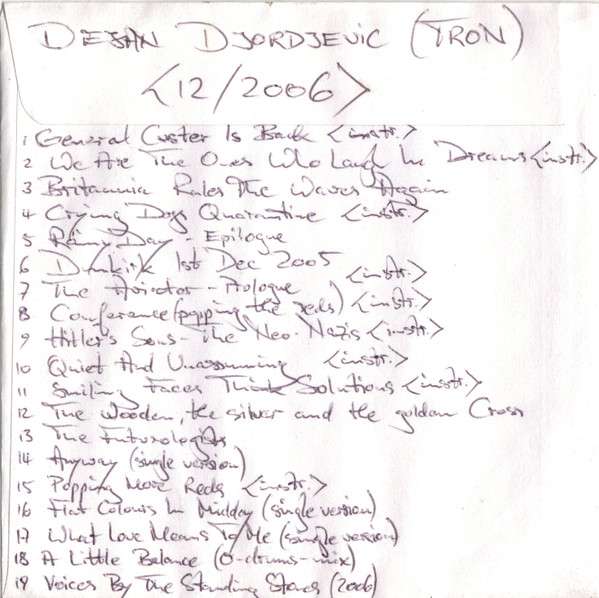 DEJAN DJORDJEVIC (TRON)
<12/2006>
1 General Custer Is Back <instr.>
2 We Are The Ones Who Laugh In Dreams <instr.>
3 Britannia Rules The Waves Again
4 Crying Dogs Quarantine <instr.>
5 Rainy Day - Epilogue
6 Dunkirk 1st Dec 2005
7 The Aviator - Prologue <instr.>
8 Conference (popping the reds) <instr.>
9 Hitler's Sons - The Neo-Nazis <instr.>
10 Quiet And Unassuming <instr.>
11 Smiling Faces Think Solutions <instr.>
12 The wooden, the silver and the golden Cross
13 The Futurologists
14 Anyway (single version)
15 Popping More Reds <instr.>
16 Flat Colours In Midday (single version)
17 What Love Means To Me (single version)
18 A Little Balance (0-drums-mix)
19 Voices By The Standing Stones (2006)